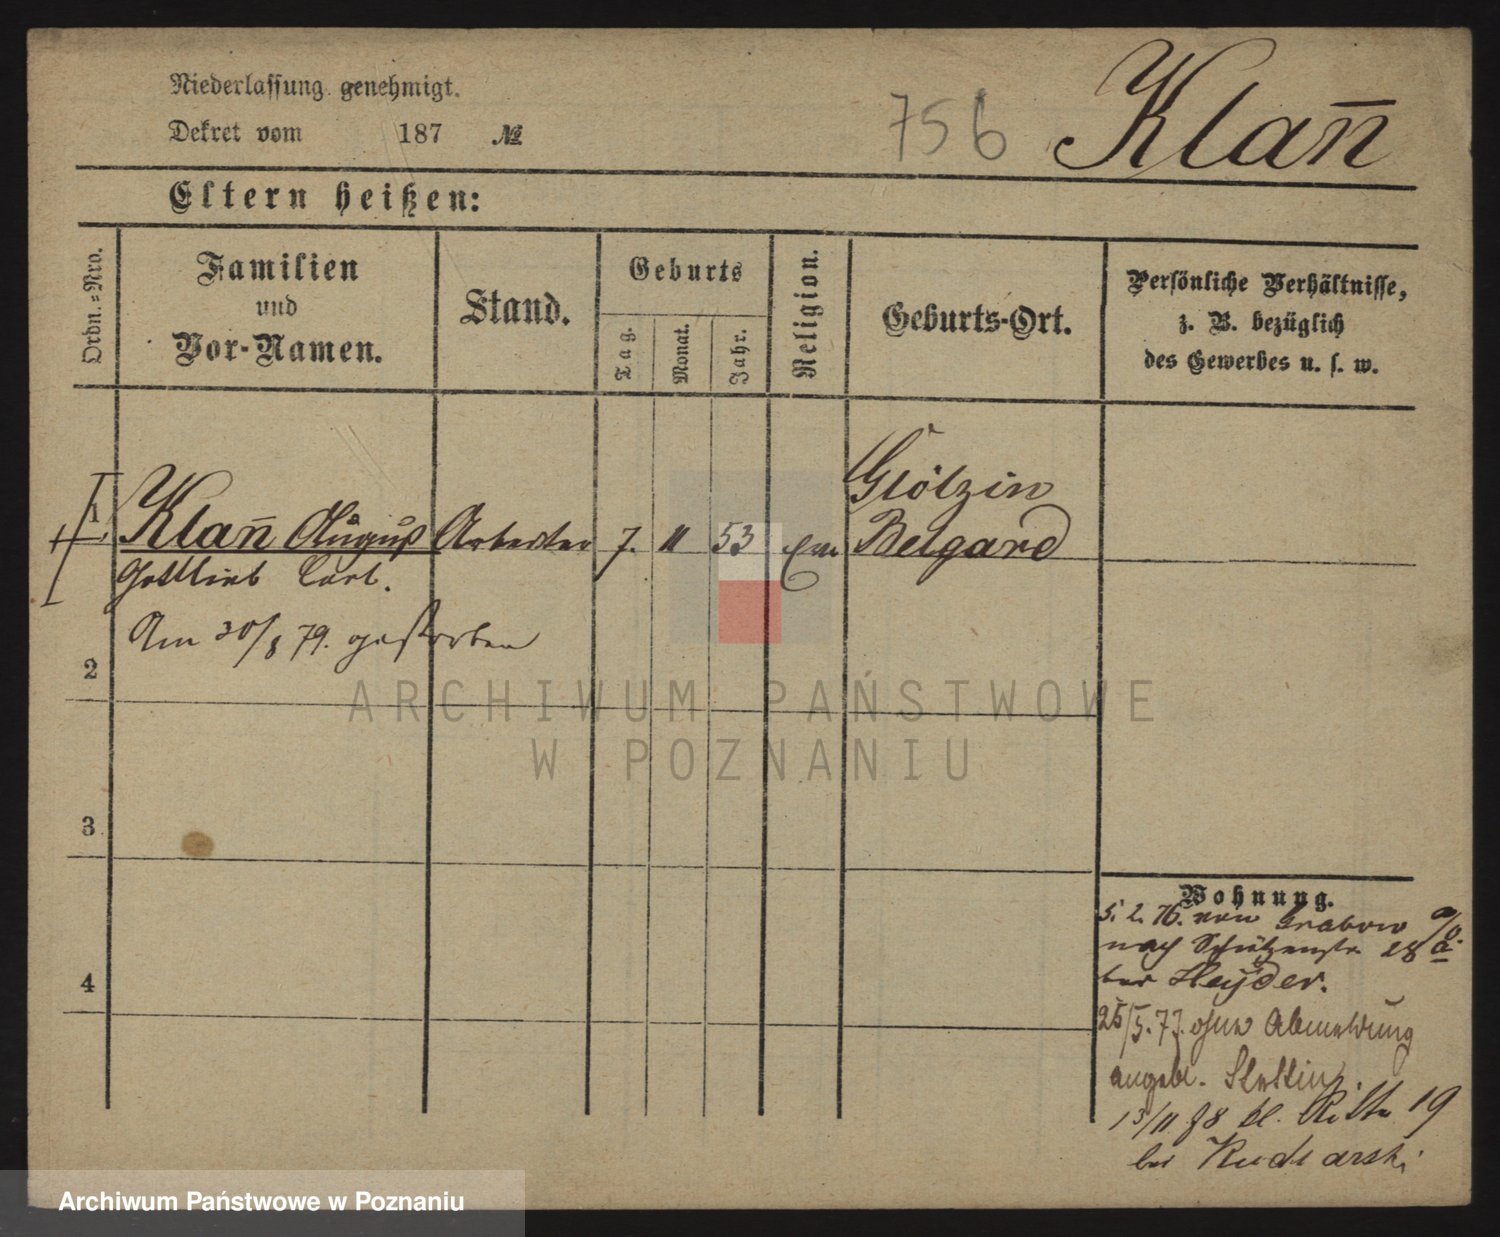 Niederlassung genehmigt.
Dekret vom 187 №
756 Klan̄
Eltern heißen:
Ordn.-Nro.
Familien
und
Vor-Namen.
Stand.
Geburts
Tag.
Monat.
Jahr.
Religion.
Geburts-Ort.
Persönliche Verhältnisse,
z. B. bezüglich
des Gewerbes u. s. w.
1 Klan̄ August Arbeiter 7. 11 53 ev. Glötzin
Belgard
Gottlieb Carl.
Am 30/8 79. gestorben
2
ARCHIWUM PAŃSTWOWE
W POZNANIU
3
4
Wohnung.
5. 2. 76. von Grabow a/o.
nach Schützenstr 28 a.
bei Heyder.
25/5. 77. ohne Abmeldung
angebl. Stettin.
13/11. 78 kl. Ritter 19
bei
Archiwum Państwowe w Poznaniu